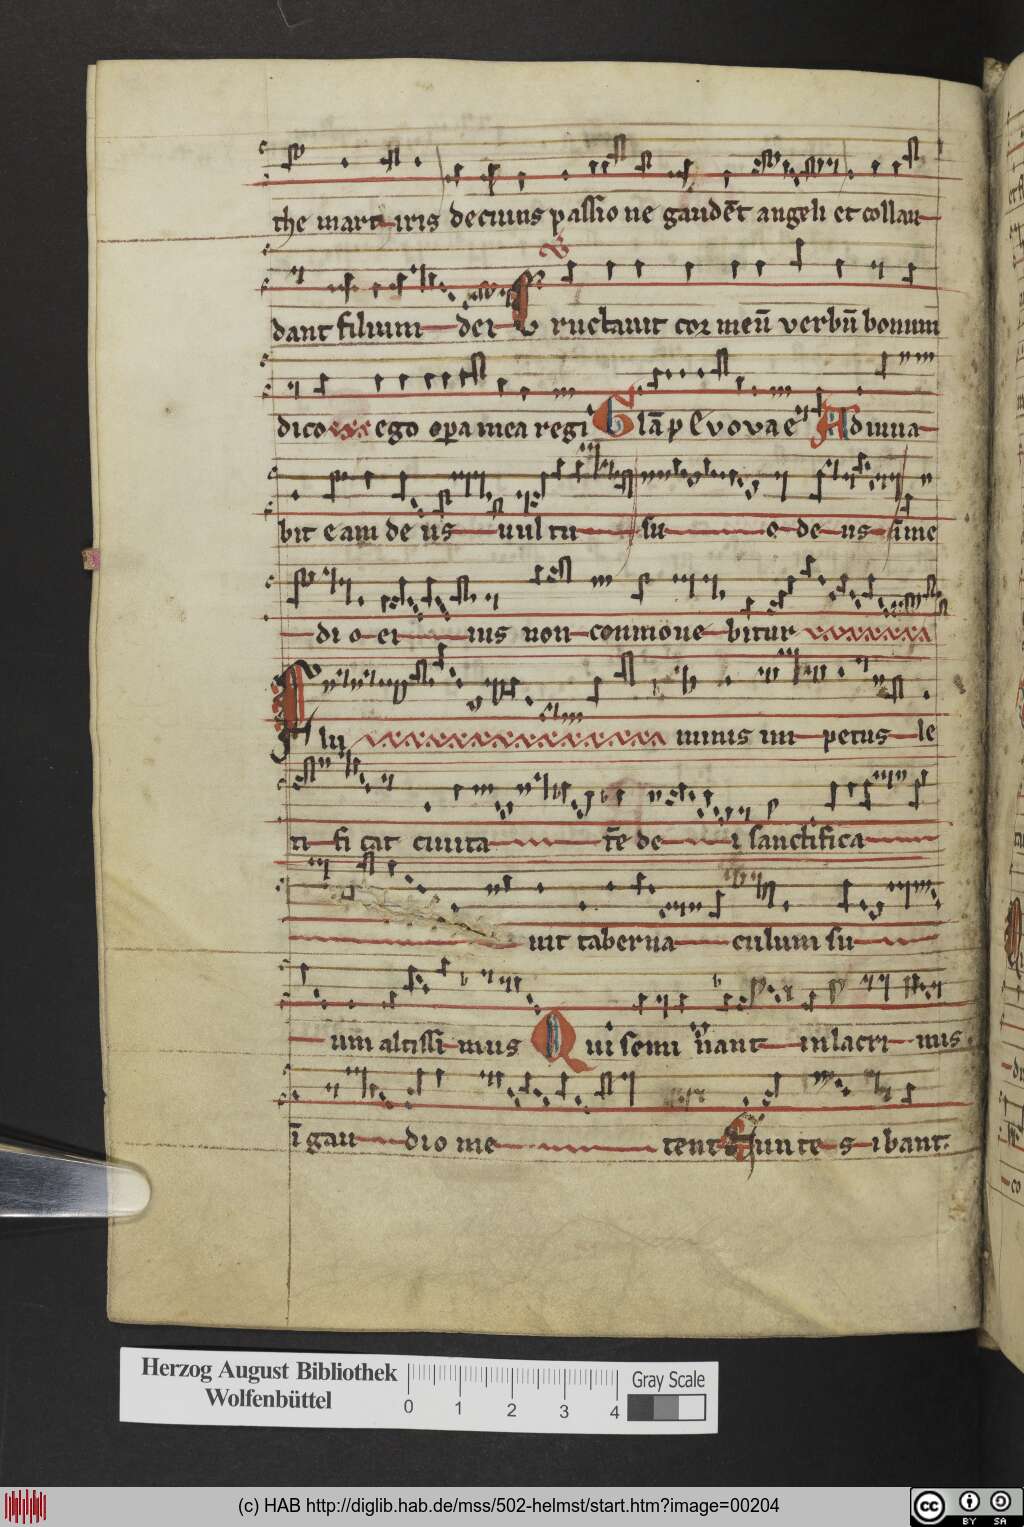 the mart iris decuius passio ne gaudēt angeli et collau
dant filium dei Eructauit cor meū verbū bonum
dico ego opera mea regi Glā p Evovae Adiuua
bit eam de us uultu su o de us ī me
di o ei ius non conmoue bitur
Flu minis im petus le
ti fi cat ciuita tē de i sanctifica
uit taberna culum su
um altissi mus Qui semi nant in lacri mis
ī gau dio me tent Eunte s ibant
Herzog August Bibliothek
Wolfenbüttel
0 1 2 3 4
Gray Scale
(c) HAB http://diglib.hab.de/mss/502-helmst/start.htm?image=00204
cc BY SA